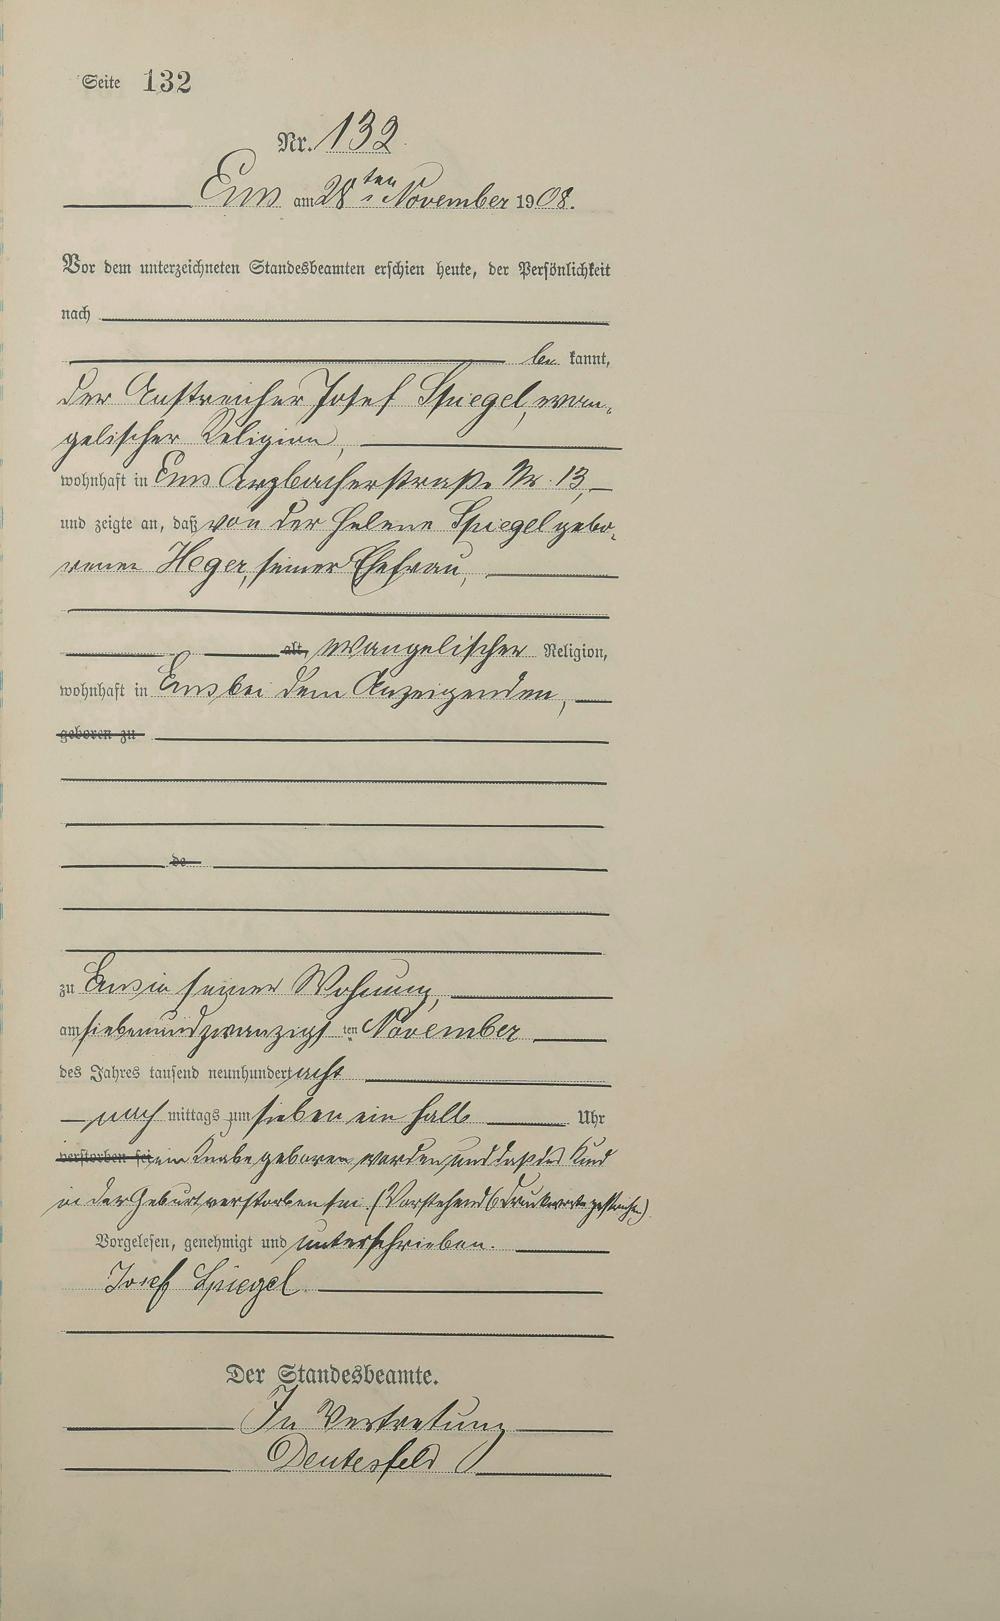 Seite 132
Nr. 132
Ems am 28ten November 1908.
Vor dem unterzeichneten Standesbeamten erschien heute, der Persönlichkeit
nach
be kannt,
der Anstreicher Josef Spiegel, evan-
gelischer Religion,
wohnhaft in Ems Arzbacherstraße Nr. 13,
und zeigte an, daß von der Helene Spiegel gebo-
renen Heger, seiner Ehefrau,
alt, evangelischer Religion,
wohnhaft in Ems bei dem Anzeigenden,
geboren zu
de
zu Ems in seiner Wohnung,
am siebenundzwanzigsten November
des Jahres tausend neunhundert acht
nach mittags um sieben ein halb Uhr
verstorben sei ein Knabe geboren worden und daß das Kind
in der Geburt verstorben sei. (Vorstehend 6 Druckworte gestrichen)
Vorgelesen, genehmigt und unterschrieben.
Josef Spiegel
Der Standesbeamte.
In Vertretung
Deutesfeld